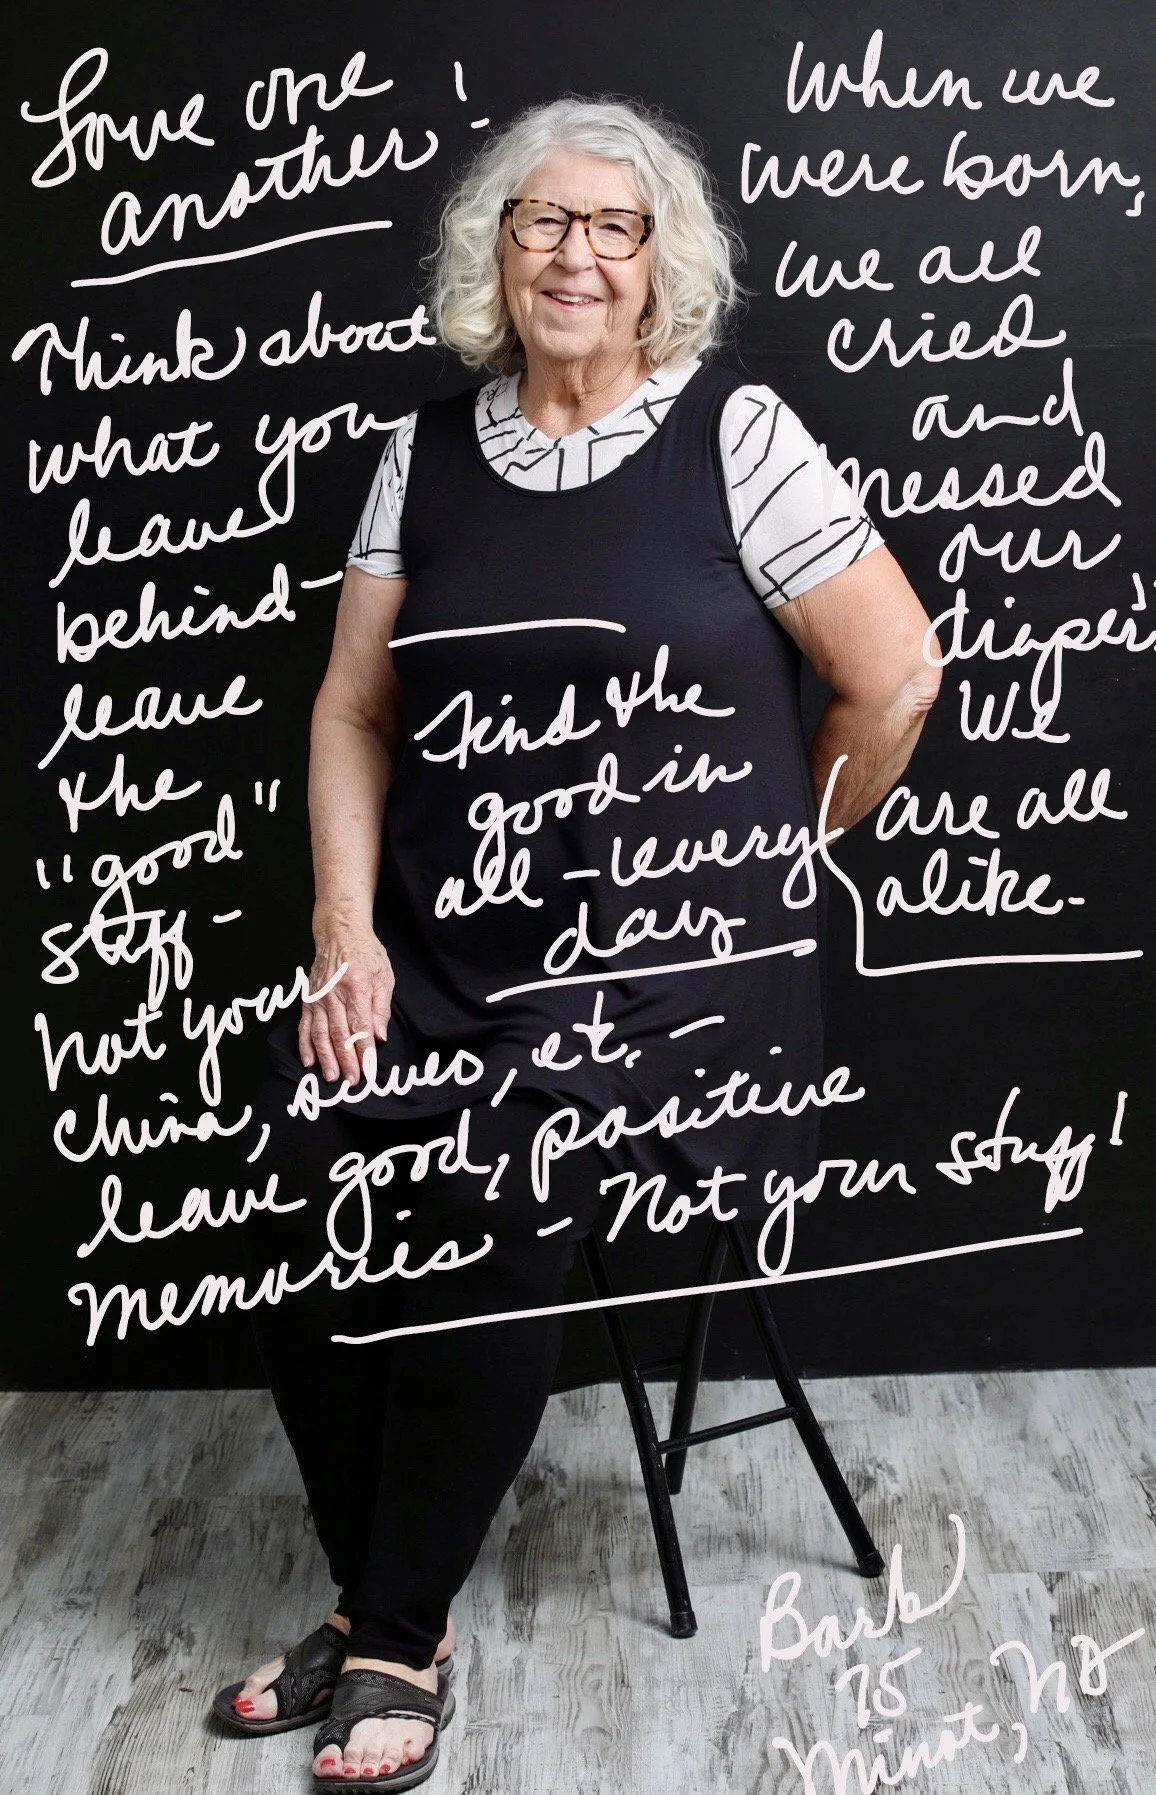 Love one
another!
Think about
what you
leave
behind-
leave
the
"good"
stuff-
not your
china, silver, et. -
leave good, positive
memories - Not your stuff!
Find the
good in
all - every
day
When we
were born,
we all
cried
and
messed
our
diapers.
We
are all
alike-
Barb
75
Minot, ND